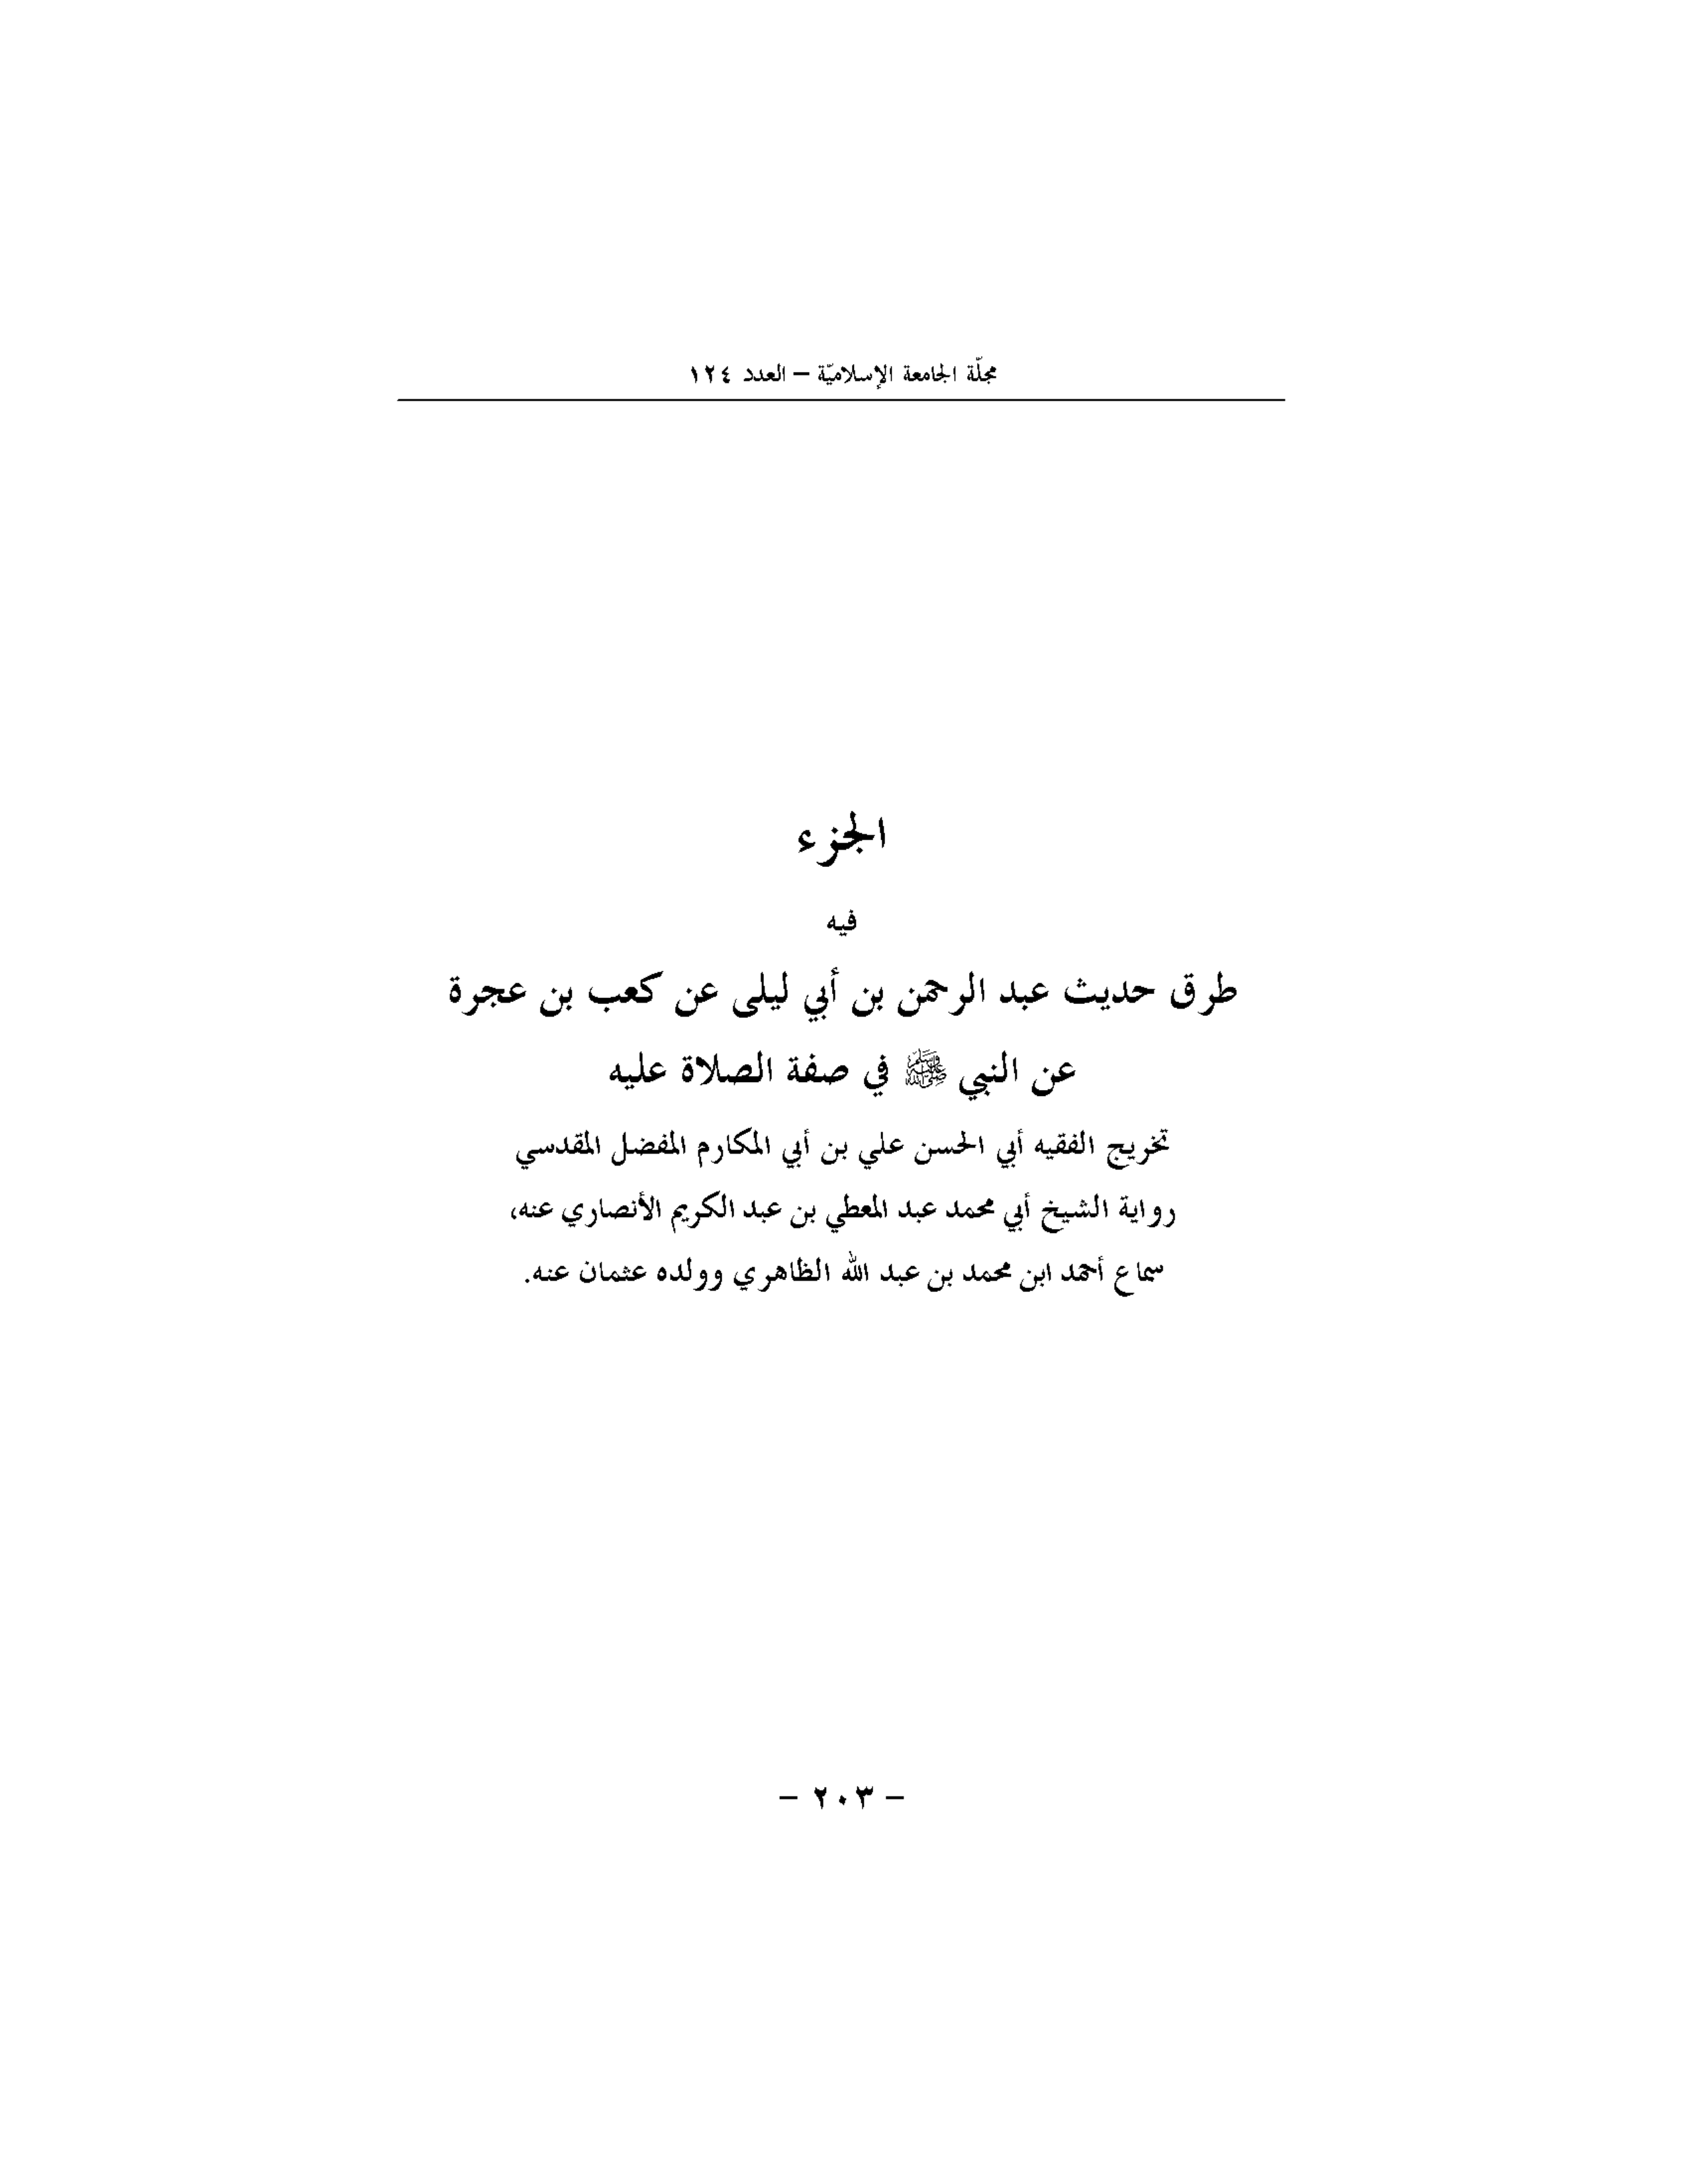 مجلّة الجامعة الإسلاميّة – العدد ١٢٤
الجزء
فيه
طرق حديث عبد الرحمن بن أبي ليلى عن كعب بن عجرة
عن النبي ﷺ في صفة الصلاة عليه
تخريج الفقيه أبي الحسن علي بن أبي المكارم المفضل المقدسي
رواية الشيخ أبي محمد عبد المعطي بن عبد الكريم الأنصاري عنه،
سماع أحمد ابن محمد بن عبد الله الظاهري وولده عثمان عنه.
– ٢٠٣ –